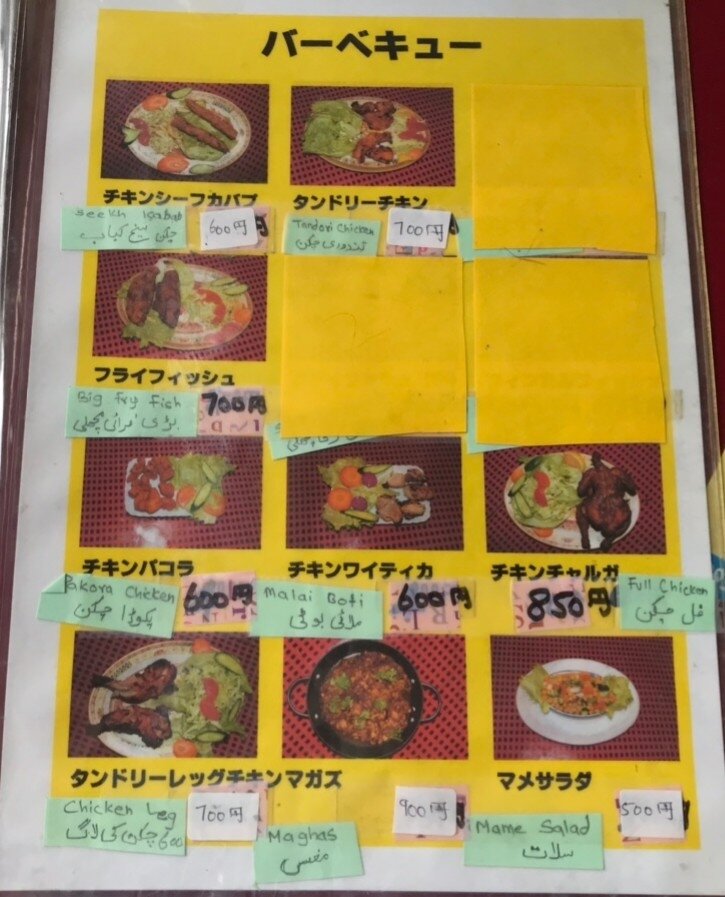 バーベキュー
チキンシーフカバブ
タンドリーチキン
Seekh Kabab
چکن سیخ کباب
600円
Tandori Chicken
تندوری چکن
700円
フライフィッシュ
Big Fry Fish
بڑی فرائی مچھلی
700円
チキンパコラ
チキンワイティカ
チキンチャルガ
Pakora Chicken
پکوڑا چکن
600円
Malai Boti
ملائی بوٹی
600円
850円
Full Chicken
فل چکن
タンドリーレッグチキン
マガズ
マメサラダ
Chicken Leg
چکن کی لاگ
700円
Maghas
مغس
900円
Mame Salad
سلات
500円